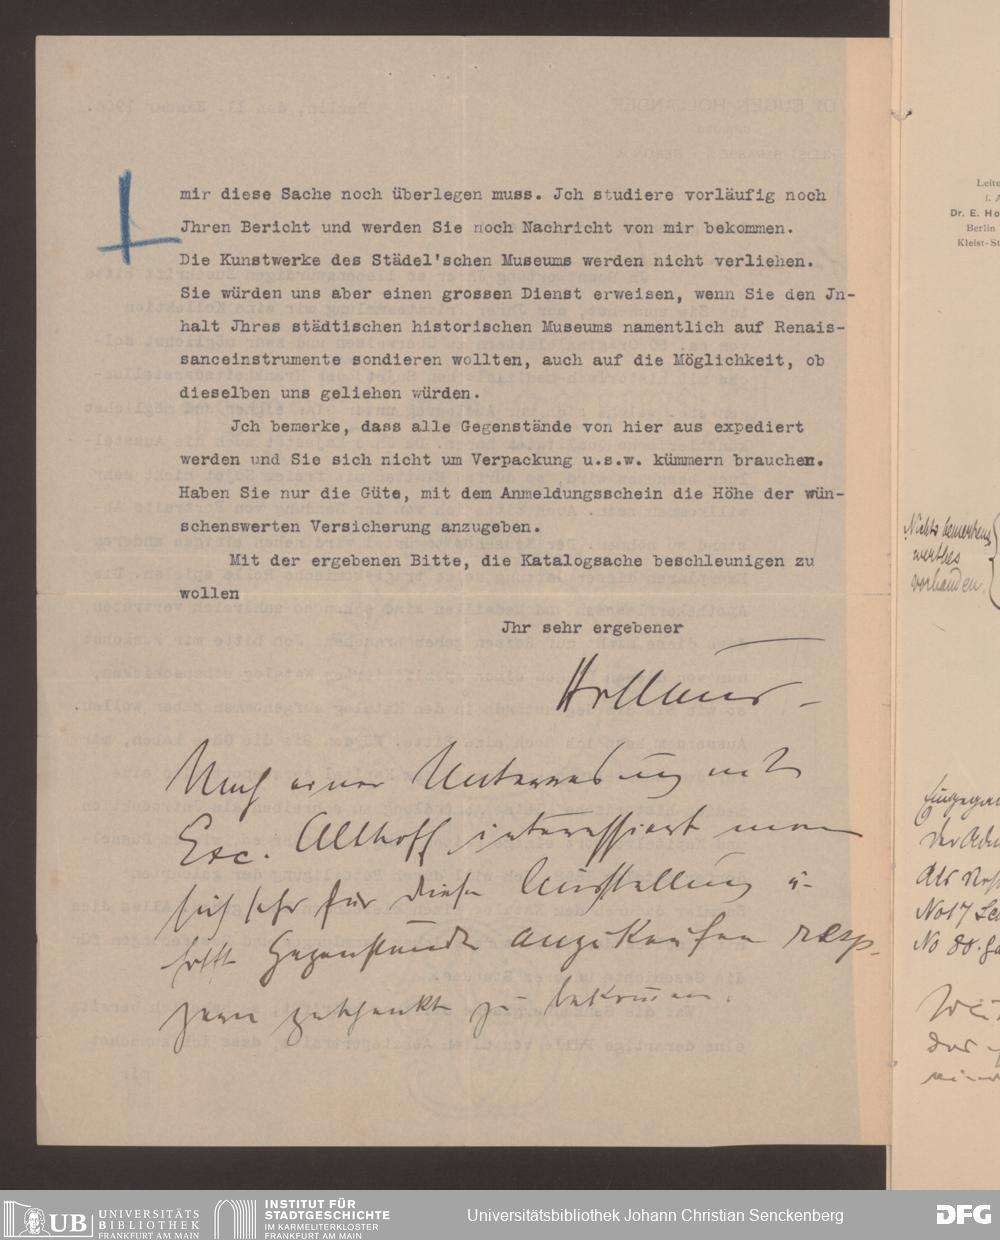 mir diese Sache noch überlegen muss. Jch studiere vorläufig noch
Jhren Bericht und werden Sie noch Nachricht von mir bekommen.
Die Kunstwerke des Städel'schen Museums werden nicht verliehen.
Sie würden uns aber einen grossen Dienst erweisen, wenn Sie den Jn-
halt Jhres städtischen historischen Museums namentlich auf Renais-
sanceinstrumente sondieren wollten, auch auf die Möglichkeit, ob
dieselben uns geliehen würden.
Jch bemerke, dass alle Gegenstände von hier aus expediert
werden und Sie sich nicht um Verpackung u.s.w. kümmern brauchen.
Haben Sie nur die Güte, mit dem Anmeldungsschein die Höhe der wün-
schenswerten Versicherung anzugeben.
Mit der ergebenen Bitte, die Katalogsache beschleunigen zu
wollen
Jhr sehr ergebener
Holländer
Nach einer Unterredung mit
Exc. Althoff interessiert man
sich sehr für diese Ausstellung u.
hofft Gegenstände anzukaufen resp.
geschenkt zu bekommen.
Leitu
i. A
Dr. E. Ho
Berlin
Kleist-St
Nichts bemerkens
werthes
vorhanden.
No 17
No 80.
UB UNIVERSITÄTS
BIBLIOTHEK
FRANKFURT AM MAIN
INSTITUT FÜR
STADTGESCHICHTE
IM KARMELITERKLOSTER
FRANKFURT AM MAIN
Universitätsbibliothek Johann Christian Senckenberg
DFG